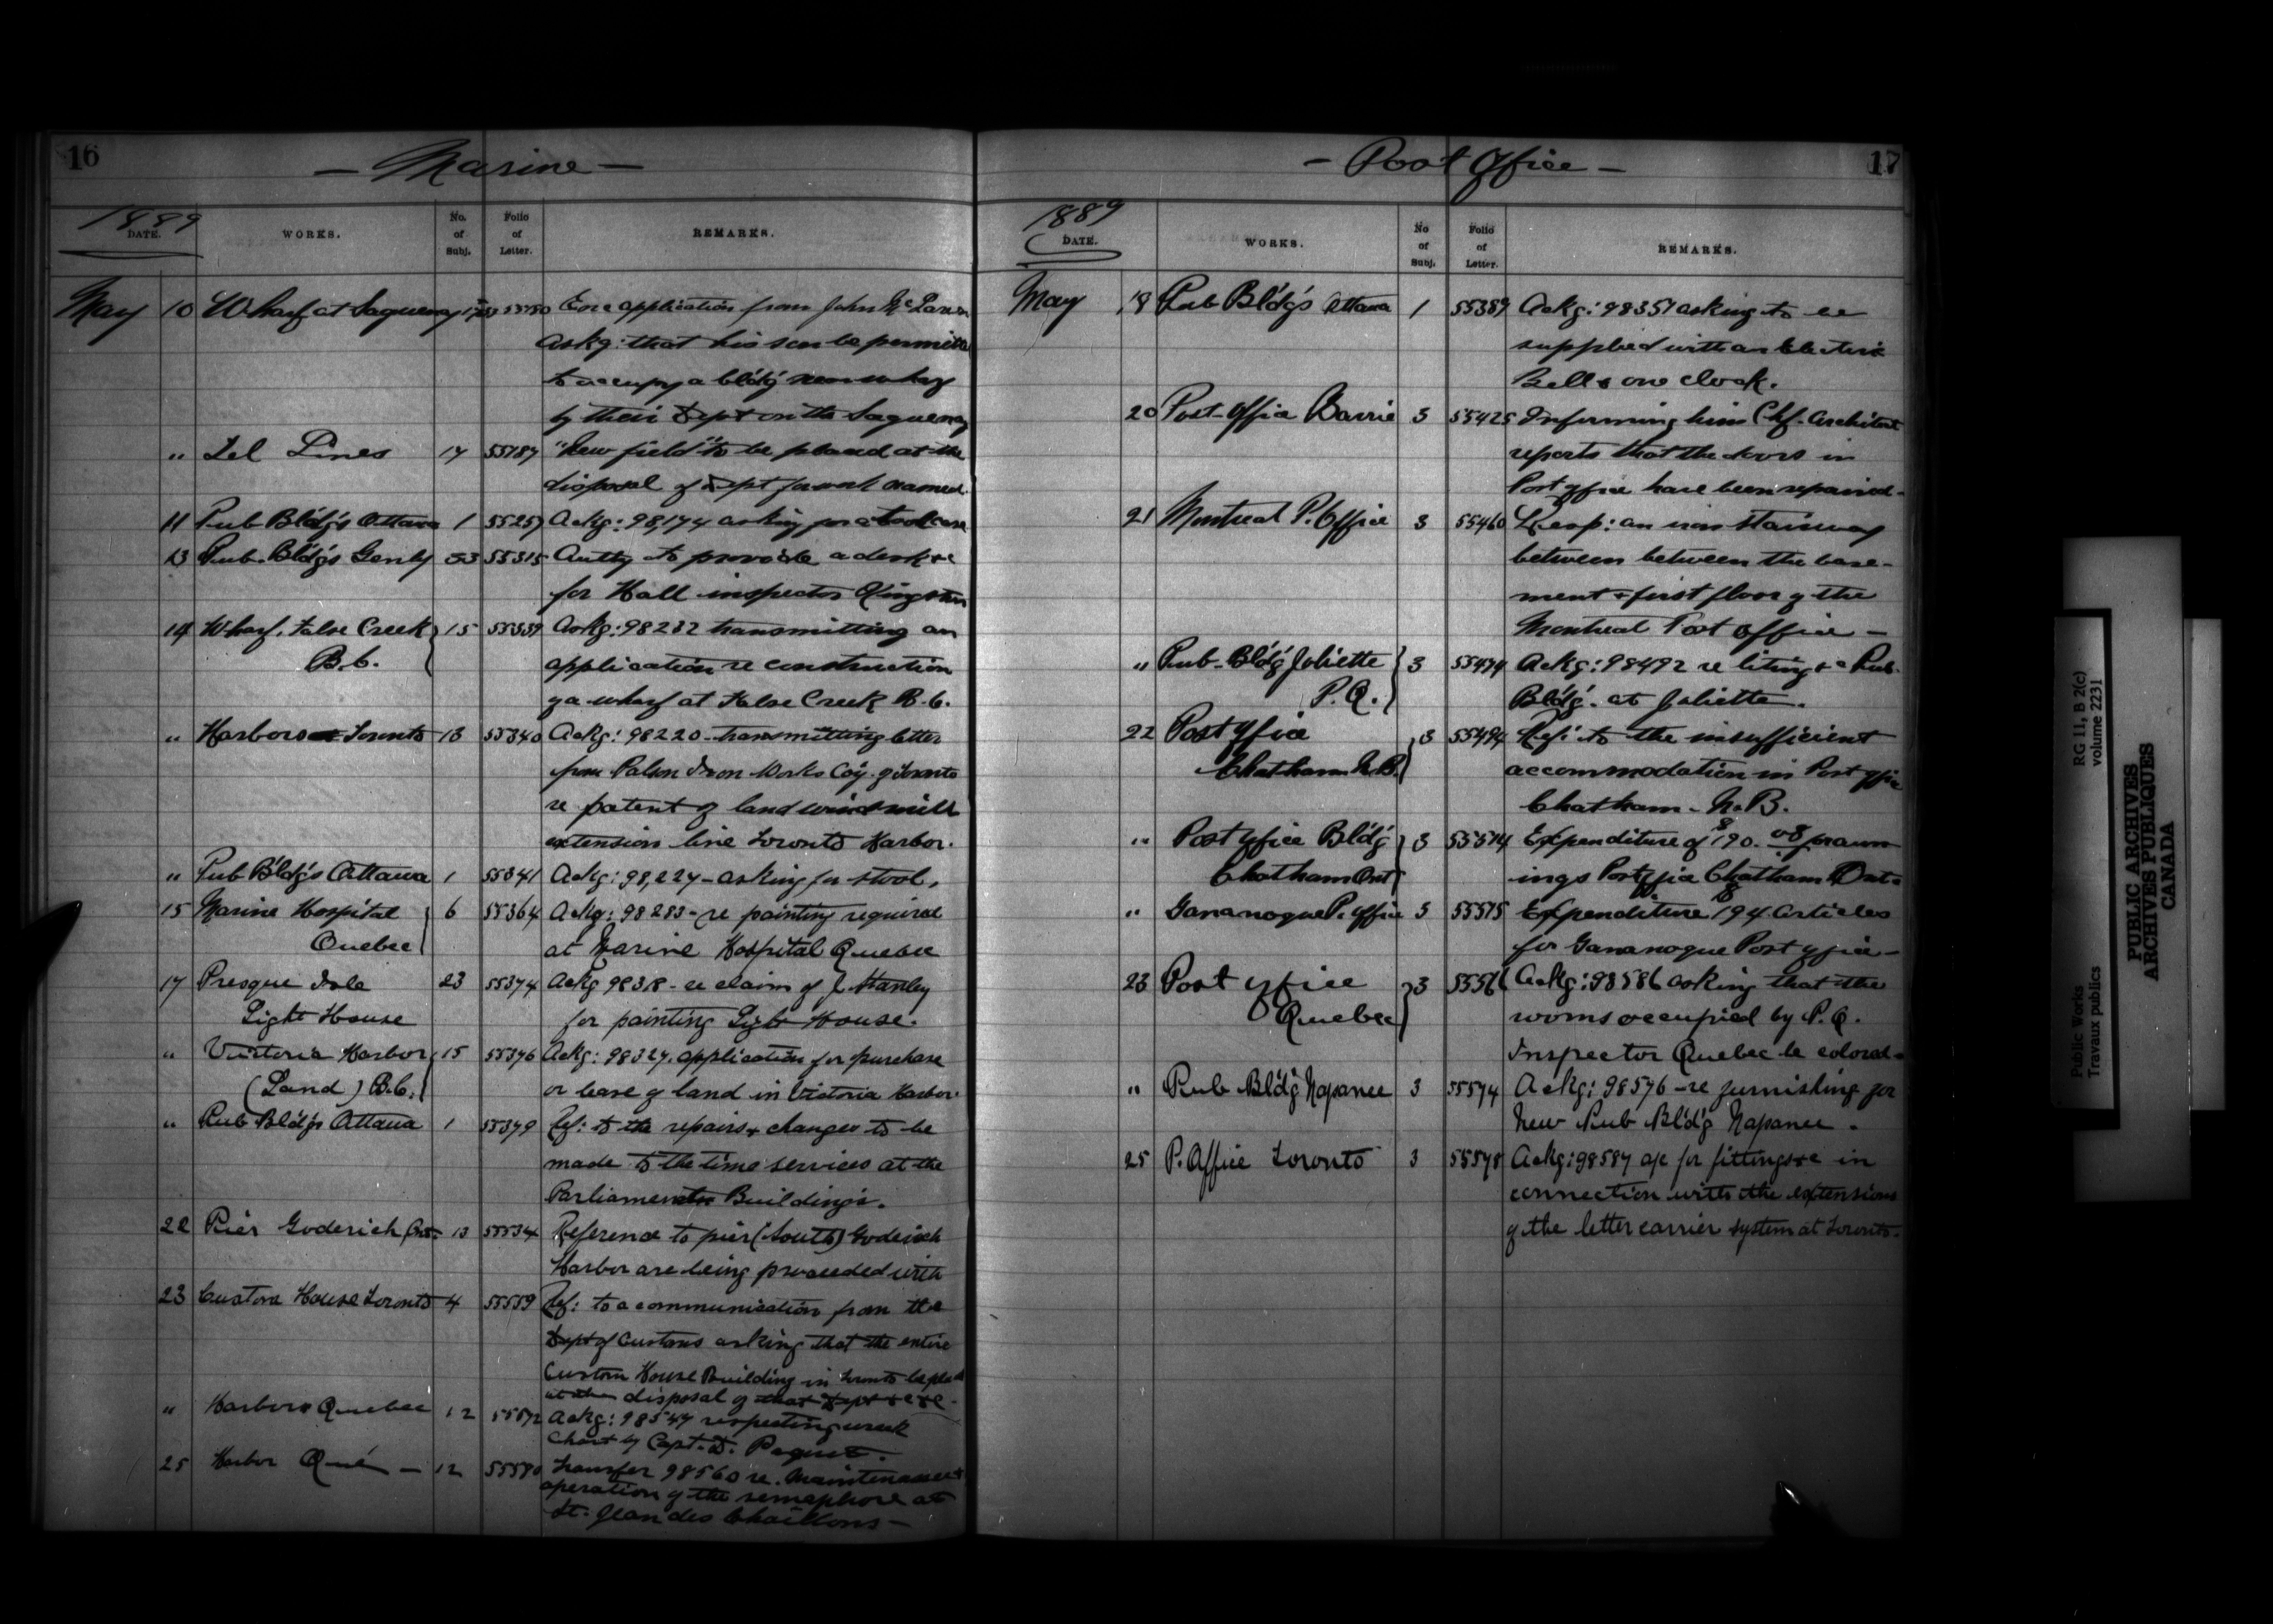 16
— Marine —
1889
DATE. WORKS. No. of Subj. Folio of Letter. REMARKS.
May 10 Wharf at Saguenay Enc application from John McLaren
askg: that his son be permitted
to occupy a bld'g near wharf
by their Dept on the Saguenay
" Tel Lines 14 55187 "Newfield" to be placed at the
disposal of Dept for work named.
11 Pub Bld'gs Ottawa 1 55257 Ackg: 98,174 asking for a bookcase
13 Pub. Bld'gs Genly 53 55315 Authy to provide a desk &c
for Hull inspector Kingston
14 Wharf, False Creek 15 55339 Ackg: 98232 transmitting an
B.C.
application re construction
of a wharf at False Creek B.C.
" Harbors Toronto 13 55340 Ackg: 98220 - transmitting letter
from Polson Iron Works Coy. of Toronto
re patent of land windmill
extension line Toronto Harbor.
" Pub Bld'gs Ottawa 1 55341 Ackg: 98,224 - asking for stool.
15 Marine Hospital 6 55364 Ackg: 98283 - re painting required
Quebec
at Marine Hospital Quebec
17 Presque Isle 23 55374 Ackg 98318 - re claim of J. Stanley
Light House
for painting Light House.
" Victoria Harbor 15 55376 Ackg: 98324. application for purchase
(Land) B.C.
or lease of land in Victoria Harbor.
" Pub Bld'gs Ottawa 1 55379 Ref: to the repairs & changes to be
made to the time services at the
Parliament Buildings.
22 Pier Goderich Ont- 13 55534 Reference to pier (South) Goderich
Harbor are being proceeded with
23 Custom House Toronto 4 55559 Ref: to a communication from the
Dept of Customs asking that the entire
Custom House Building in Toronto be placed
at the disposal of that Dept &c &c -
" Harbors Quebec 12 Ackg: 98547 respecting wreck
chart by Capt. D. Paquet.
25 Harbor Qué — 12 55580 Transfer 98560 re. Maintenance &
operation of the semaphore at
St. Jean des Chaillons —
— Post Office —
17
1889
DATE. WORKS. No of Subj. Folio of Letter. REMARKS.
May 18 Pub Bld'gs Ottawa 1 55389 Ackg: 98351 asking to be
supplied with an Electric
Bell & one clock.
20 Post-Office Barrie 3 55425 Informing him Chf. Architect
reports that the doors in
Post Office have been repaired -
21 Montreal P. Office 3 55460 Resp: an iron stairway
between between the base-
ment & first floor of the
Montreal Post Office —
" Pub-Bld'g Joliette 3 55474 Ackg: 98492 re liting &c Pub.
P.Q.
Bld'g. at Joliette.
22 Post Office 3 55494 Ref: to the insufficient
Chatham N.B.
accommodation in Post Office
Chatham - N.B.
" Post Office Bld'g 3 55514 Expenditure of $190.08 for awn
Chatham Ont
ings Post Office Chatham Ont-
" Gananoque P. Office 3 55515 Expenditure $194 articles
for Gananoque Post Office -
23 Post Office 3 55566 Ackg: 98586 asking that the
Quebec
rooms occupied by P.O.
Inspector Quebec be colored -
" Pub Bld'g Napanee 3 55574 Ackg: 98576 - re furnishing for
New Pub Bld'g Napanee.
25 P. Office Toronto 3 55578 Ackg: 98587 a/c for fittings &c in
connection with the extensions
of the letter carrier system at Toronto.
Public Works RG 11, B 2(c)
Travaux publics volume 2231
PUBLIC ARCHIVES
ARCHIVES PUBLIQUES
CANADA